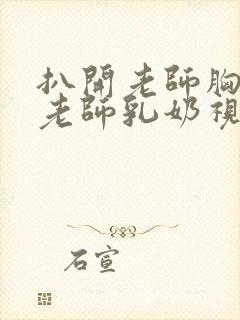 扒開老師胸
老師乳奶視
石宣